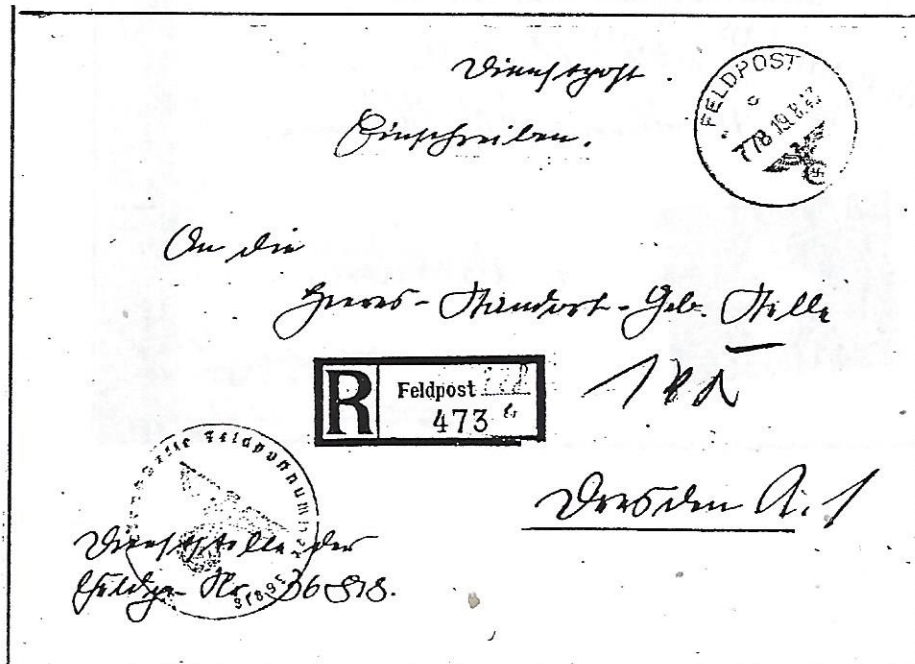 Dienstpost.
Einschreiben.
FELDPOST
c
778 19.8.43
An die
Heeres-Standort-Geb. Stelle
R
Feldpost 778
473 b
Dresden A. 1
Dienststelle Feldpostnummer 36818
Dienststelle der
Feldp. Nr. 36818.